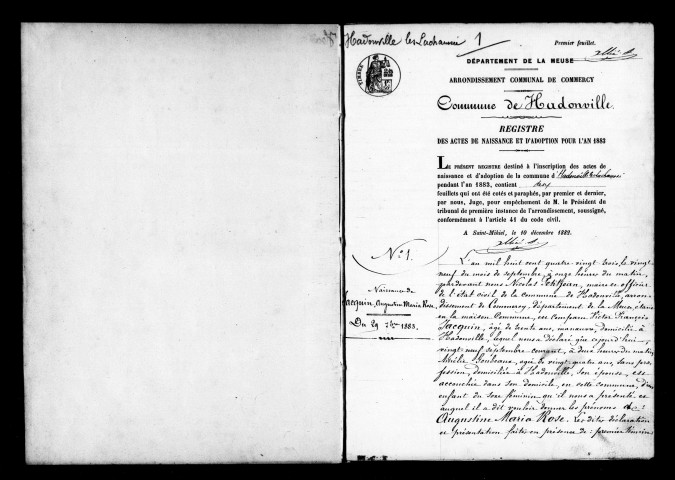 Hadonville les Lachaussée 1
Premier feuillet.
DÉPARTEMENT DE LA MEUSE
TIMBRE
ARRONDISSEMENT COMMUNAL DE COMMERCY
Commune de Hadonville
REGISTRE
DES ACTES DE NAISSANCE ET D'ADOPTION POUR L'AN 1883
LE PRÉSENT REGISTRE destiné à l'inscription des actes de
naissance et d'adoption de la commune d
pendant l'an 1883, contient
feuillets qui ont été cotés et paraphés, par premier et dernier,
par nous, Juge, pour empêchement de M. le Président du
tribunal de première instance de l'arrondissement, soussigné,
conformément à l'article 41 du code civil.
A Saint-Mihiel, le 10 décembre 1882.
N° 1.
Naissance de
Jacquin, Augustine Maria Rose.
Du 29 7bre 1883.
L'an mil huit cent quatre vingt trois, le vingt
neuf du mois de septembre, à onze heures du matin,
pardevant nous Nicolas Petitjean, maire et officier
de l'état civil de la commune de Hadonville, arron-
dissement de Commercy, département de la Meuse, dans
la maison Commune, est comparu Victor François
Jacquin, âgé de trente ans, manœuvre, domicilié à
Hadonville, lequel nous a déclaré que aujourd'hui,
vingt neuf septembre courant, à deux heures du matin
âgée de vingt quatre ans, sans pro-
fession, domiciliée à Hadonville, son épouse, est
accouchée dans son domicile, en cette commune, d'un
enfant du sexe féminin qu'il nous a présenté et
auquel il a dit vouloir donner les prénoms de:
Augustine Maria Rose. Les dites déclaration
et présentation faites en présence de: premier témoin